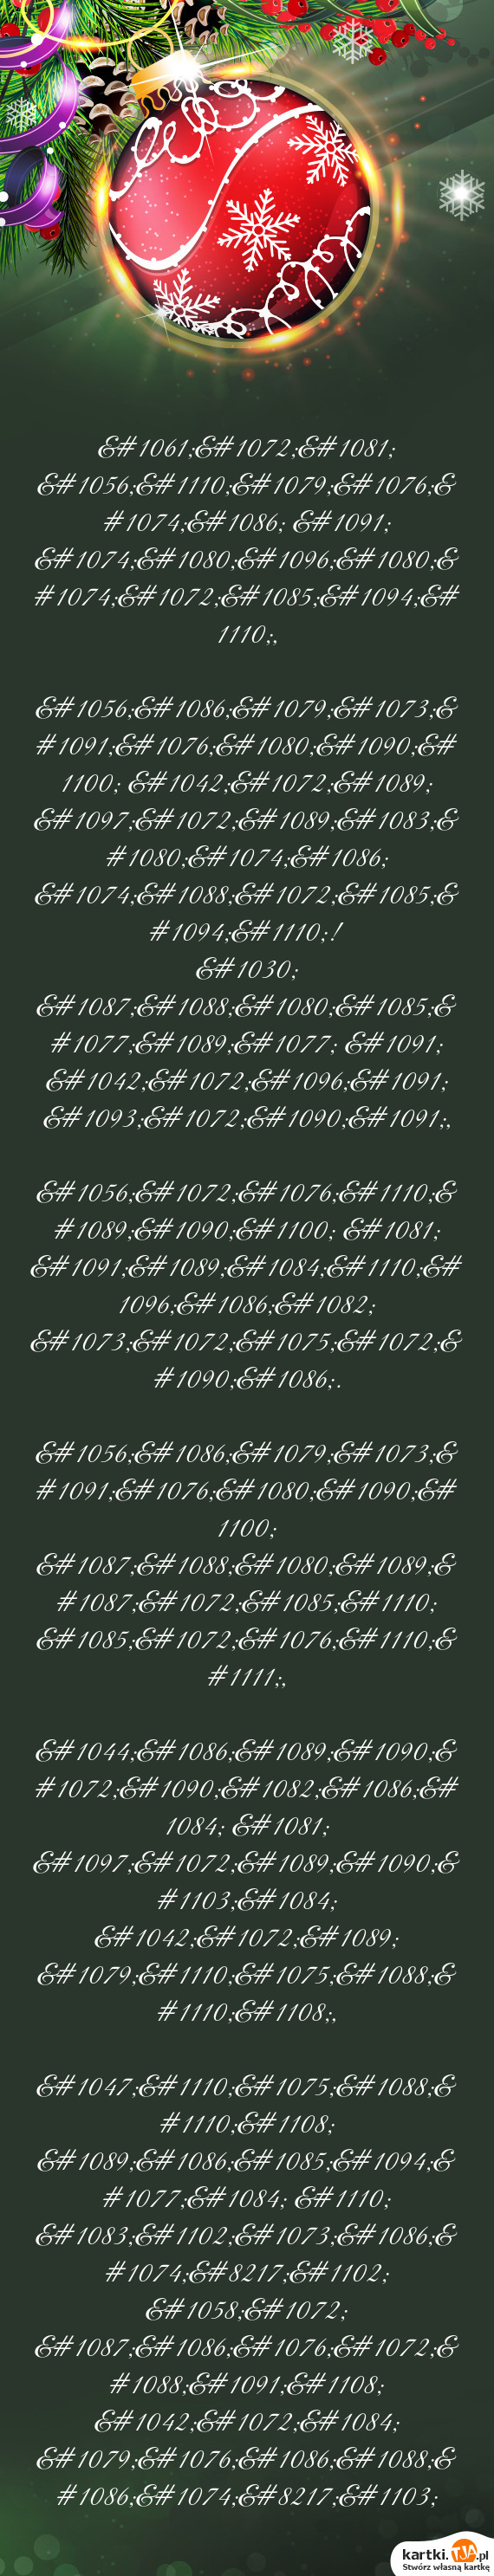 &#1061;&#1072;&#1081;
&#1056;&#1110;&#1079;&#1076;&
#1074;&#1086; &#1091;
&#1074;&#1080;&#1096;&#1080;&
#1074;&#1072;&#1085;&#1094;&#
1110;,
&#1056;&#1086;&#1079;&#1073;&
#1091;&#1076;&#1080;&#1090;&#
1100; &#1042;&#1072;&#1089;
&#1097;&#1072;&#1089;&#1083;&
#1080;&#1074;&#1086;
&#1074;&#1088;&#1072;&#1085;&
#1094;&#1110;!
&#1030;
&#1087;&#1088;&#1080;&#1085;&
#1077;&#1089;&#1077; &#1091;
&#1042;&#1072;&#1096;&#1091;
&#1093;&#1072;&#1090;&#1091;,
&#1056;&#1072;&#1076;&#1110;&
#1089;&#1090;&#1100; &#1081;
&#1091;&#1089;&#1084;&#1110;&#
1096;&#1086;&#1082;
&#1073;&#1072;&#1075;&#1072;&
#1090;&#1086;.
&#1056;&#1086;&#1079;&#1073;&
#1091;&#1076;&#1080;&#1090;&#
1100;
&#1087;&#1088;&#1080;&#1089;&
#1087;&#1072;&#1085;&#1110;
&#1085;&#1072;&#1076;&#1110;&
#1111;,
&#1044;&#1086;&#1089;&#1090;&
#1072;&#1090;&#1082;&#1086;&#
1084; &#1081;
&#1097;&#1072;&#1089;&#1090;&
#1103;&#1084;
&#1042;&#1072;&#1089;
&#1079;&#1110;&#1075;&#1088;&
#1110;&#1108;,
&#1047;&#1110;&#1075;&#1088;&
#1110;&#1108;
&#1089;&#1086;&#1085;&#1094;&
#1077;&#1084; &#1110;
&#1083;&#1102;&#1073;&#1086;&
#1074;&#8217;&#1102;
&#1058;&#1072;
&#1087;&#1086;&#1076;&#1072;&
#1088;&#1091;&#1108;
&#1042;&#1072;&#1084;
&#1079;&#1076;&#1086;&#1088;&
#1086;&#1074;&#8217;&#1103;
kartki.TJA.pl
Stwórz własną kartkę